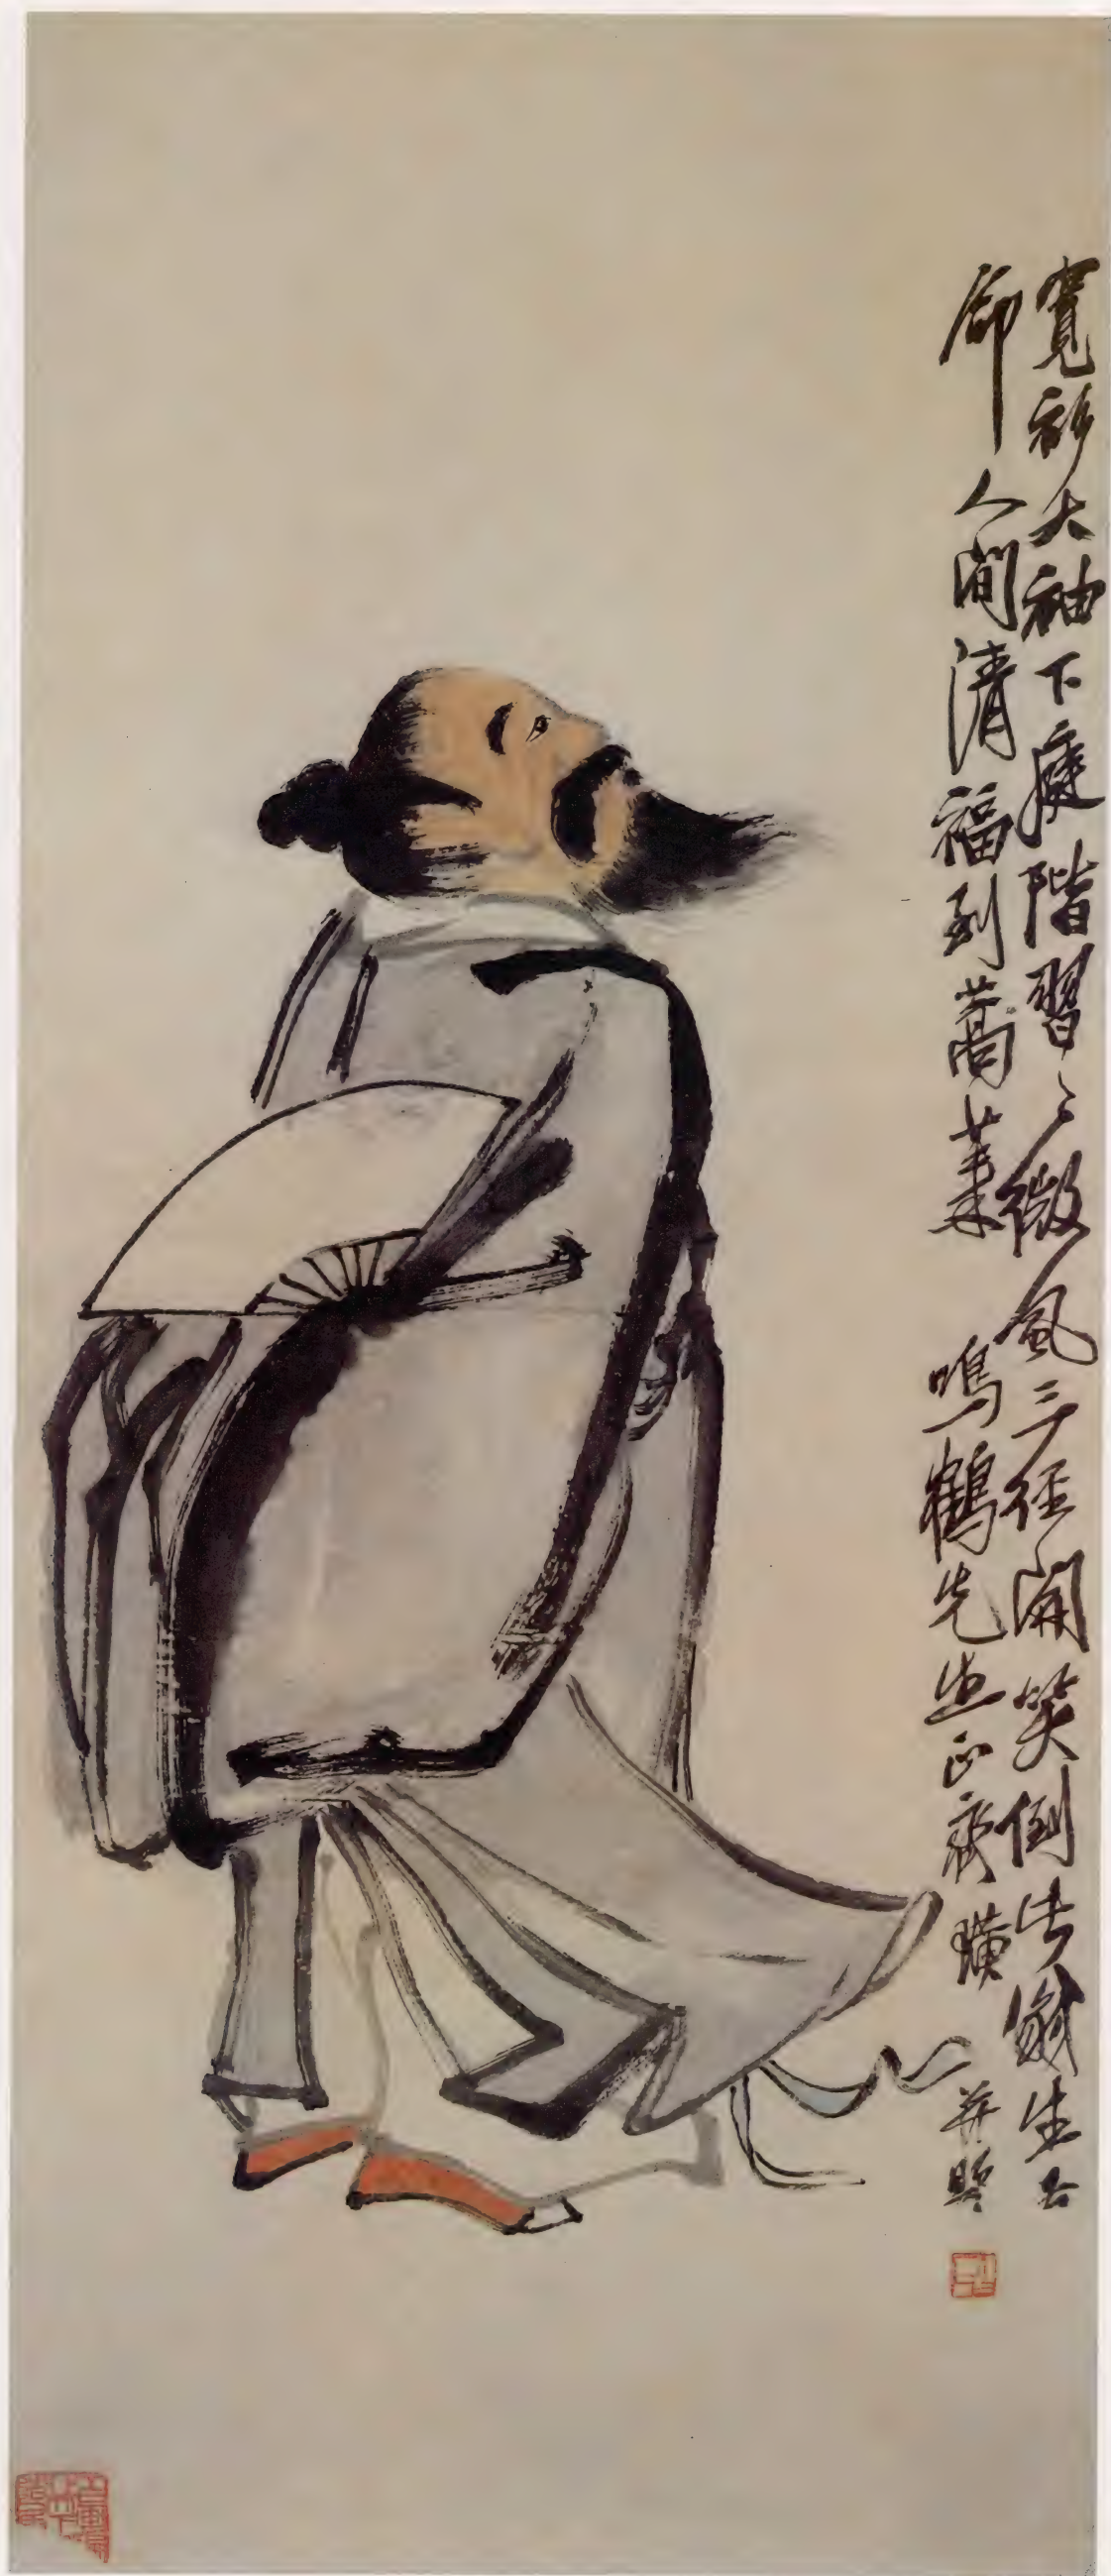 寬衫大袖下庭階習〻微風三徑開笑倒此翁生告
卻人間清福到蒿萊 鳴鶴先生正齊璜并題